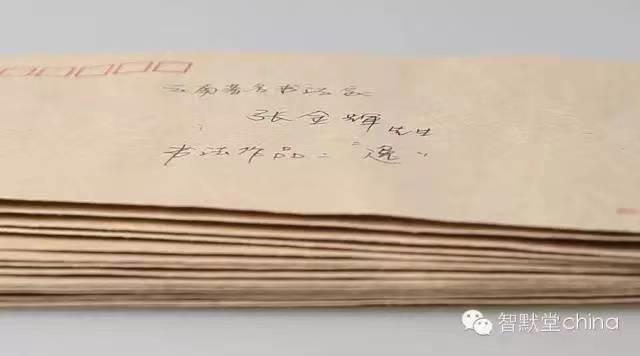 云南著名书法家
张金辉先生
书法作品：“逸”
智默堂china